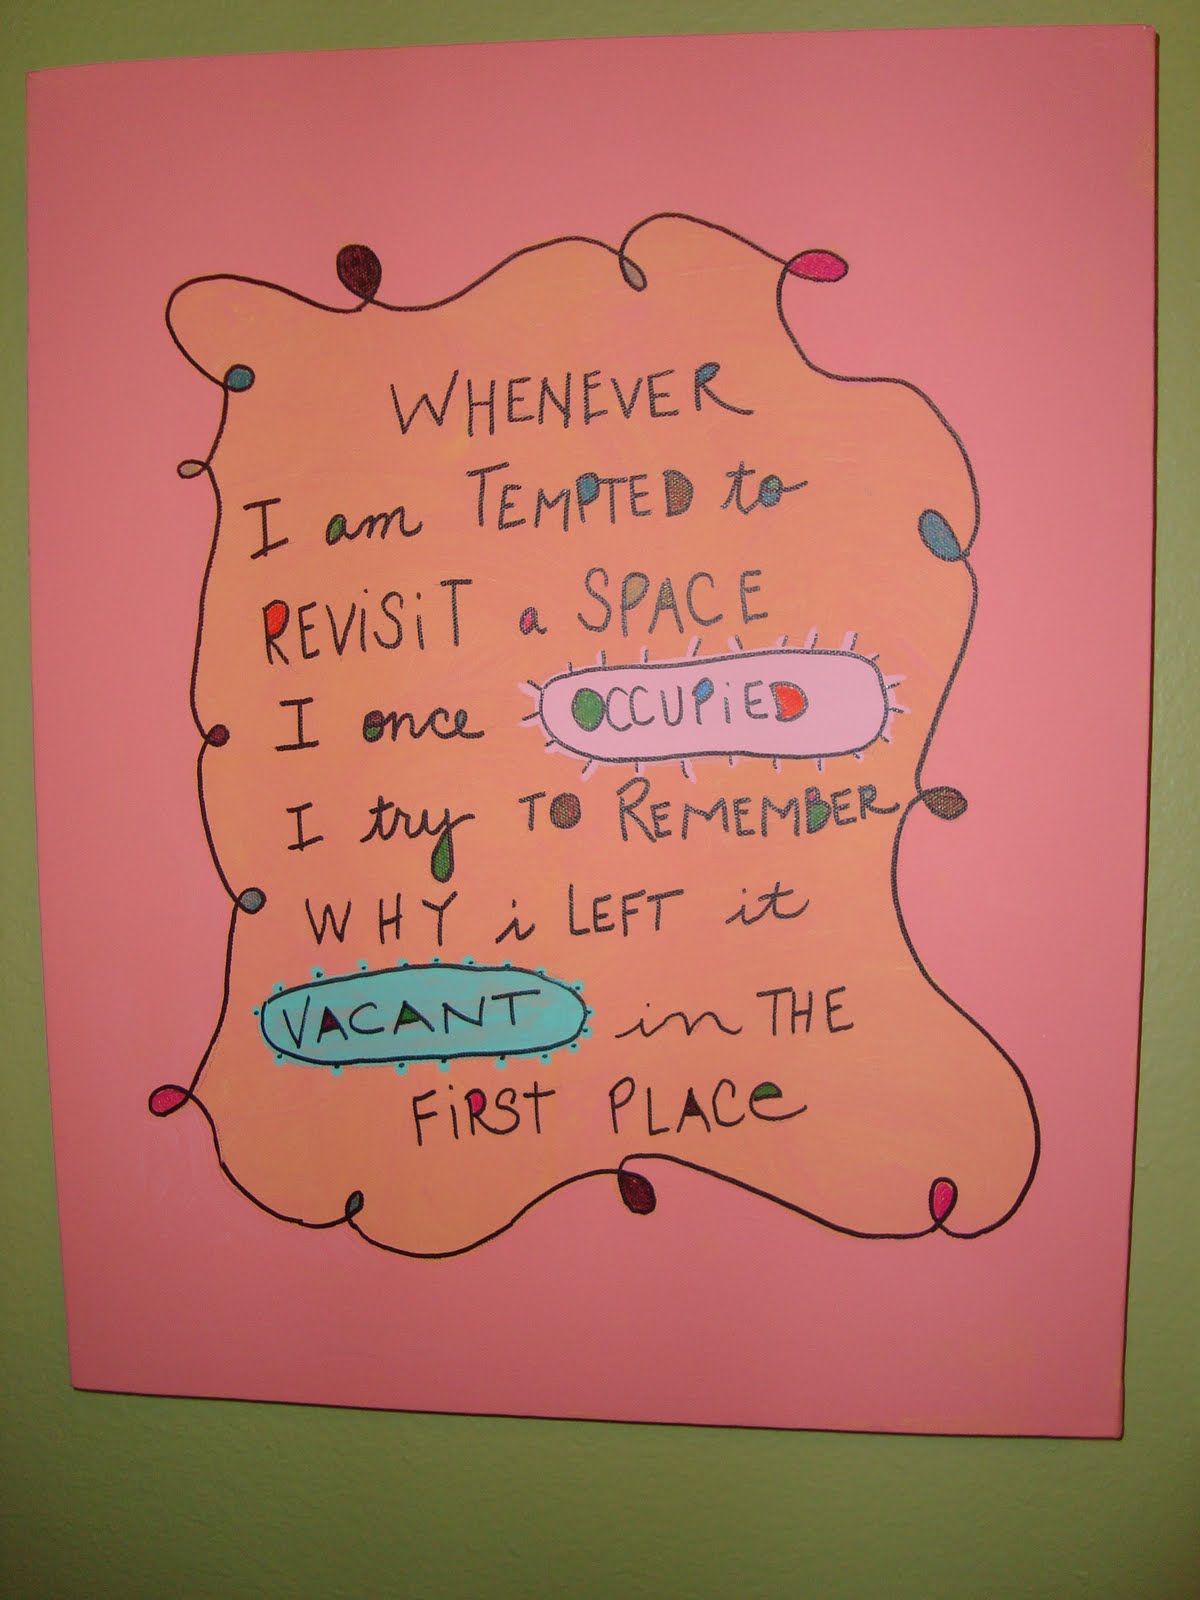 WHENEVER
I am TEMPTED to
REViSiT a SPACE
I once OCCUPiED
I try TO REMEMBER
WHY i LEFT it
VACANT in THE
FiRST PLACe